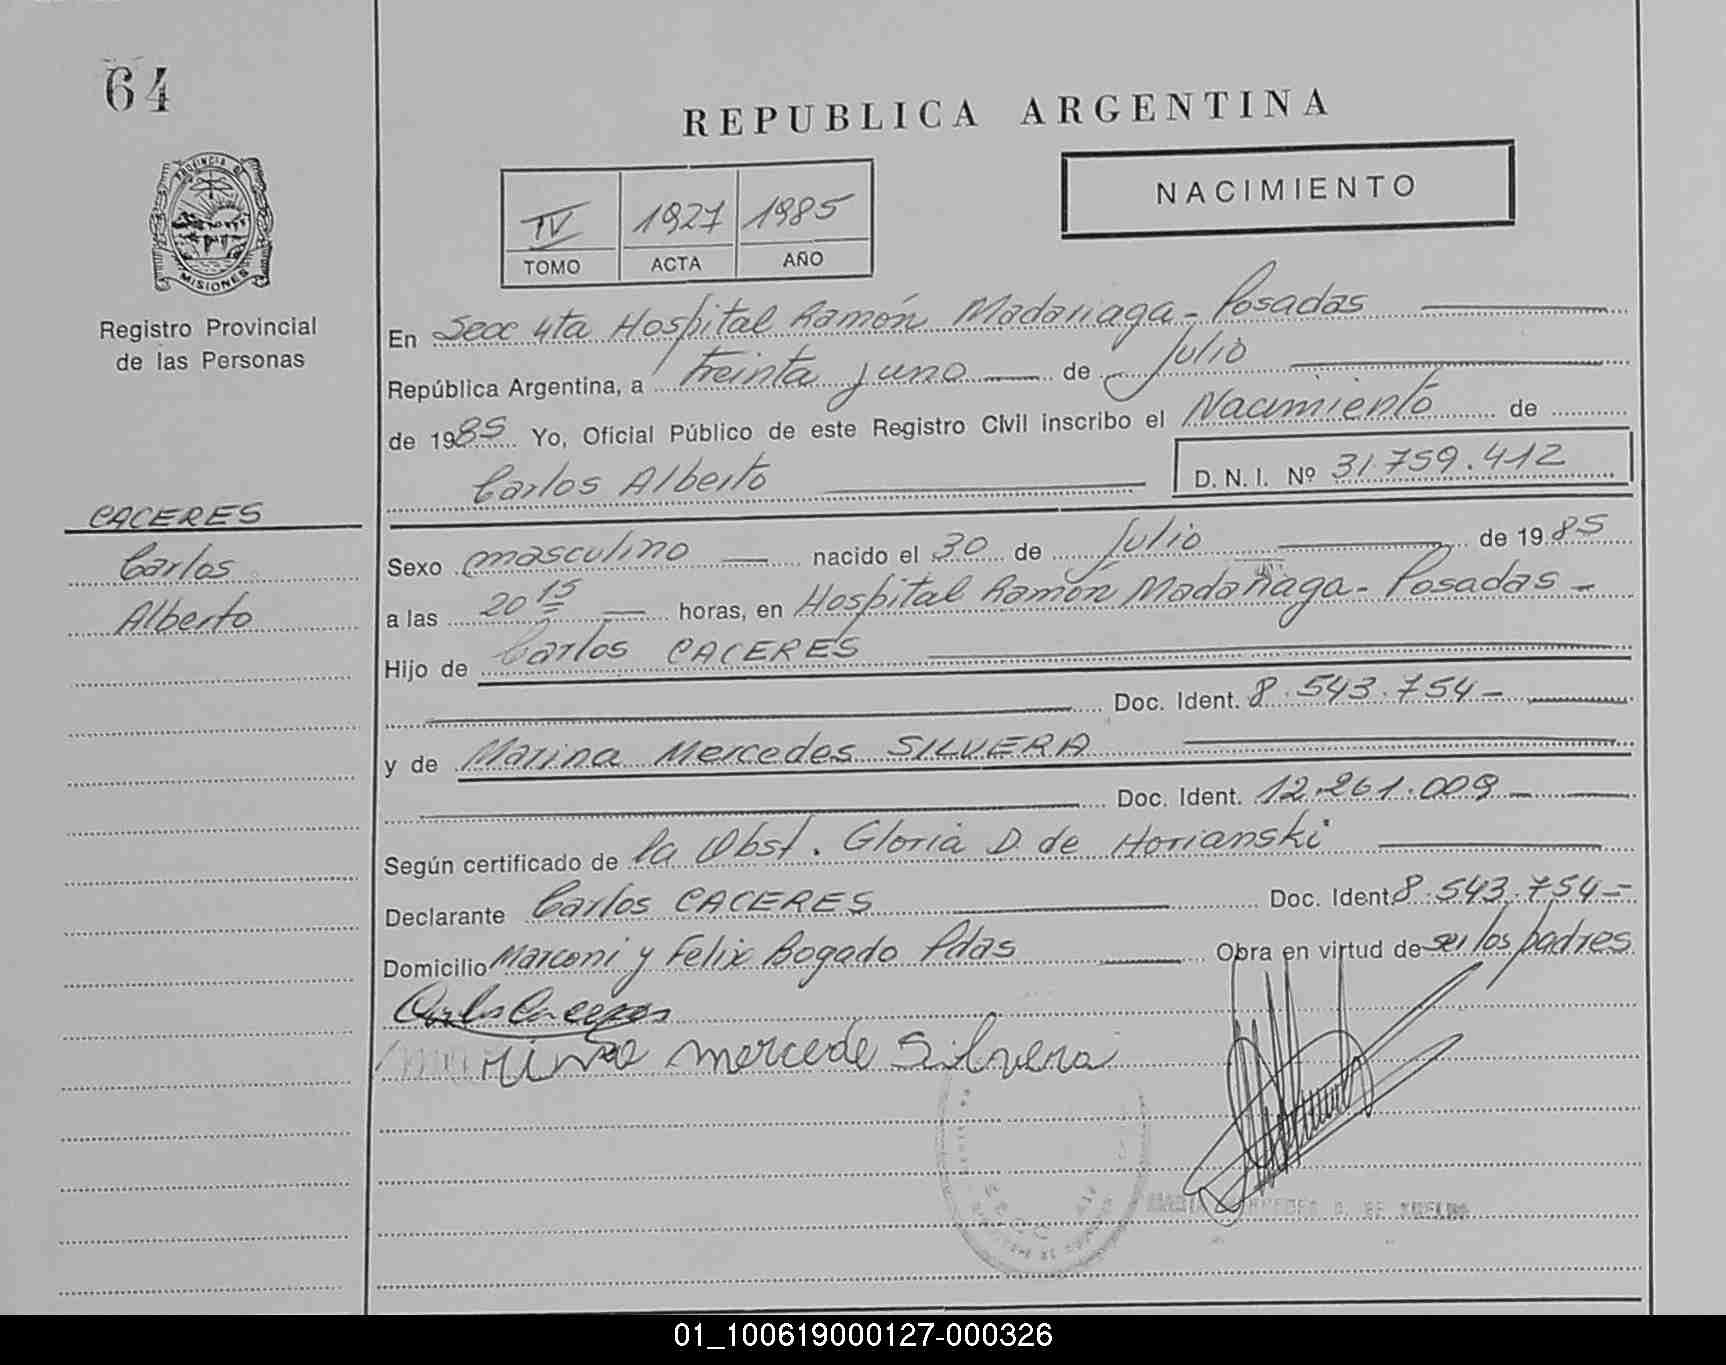 64
REPUBLICA ARGENTINA
PROVINCIA DE
MISIONES
Registro Provincial
de las Personas
IV 1927 1985
TOMO ACTA AÑO
NACIMIENTO
En Secc 4ta Hospital Ramón Madariaga - Posadas
República Argentina, a treinta juno de Julio
de 1985 Yo, Oficial Público de este Registro Civil inscribo el Nacimiento de
Carlos Alberto D. N. I. Nº 31.759.412
CACERES
Carlos
Alberto
Sexo masculino nacido el 30 de Julio de 1985
a las 20 15 horas, en Hospital Ramón Madariaga - Posadas -
Hijo de Carlos CACERES
Doc. Ident. 8.543.754 -
y de Marina Mercedes SILVERA
Doc. Ident. 12.261.009 -
Según certificado de la Obst. Gloria D. de Horianski
Declarante Carlos CACERES Doc. Ident. 8.543.754 -
Domicilio Marconi y Felix Bogado Pdas Obra en virtud de ser los padres
Carlos Caceres
Marina mercede Silvera
01_100619000127-000326